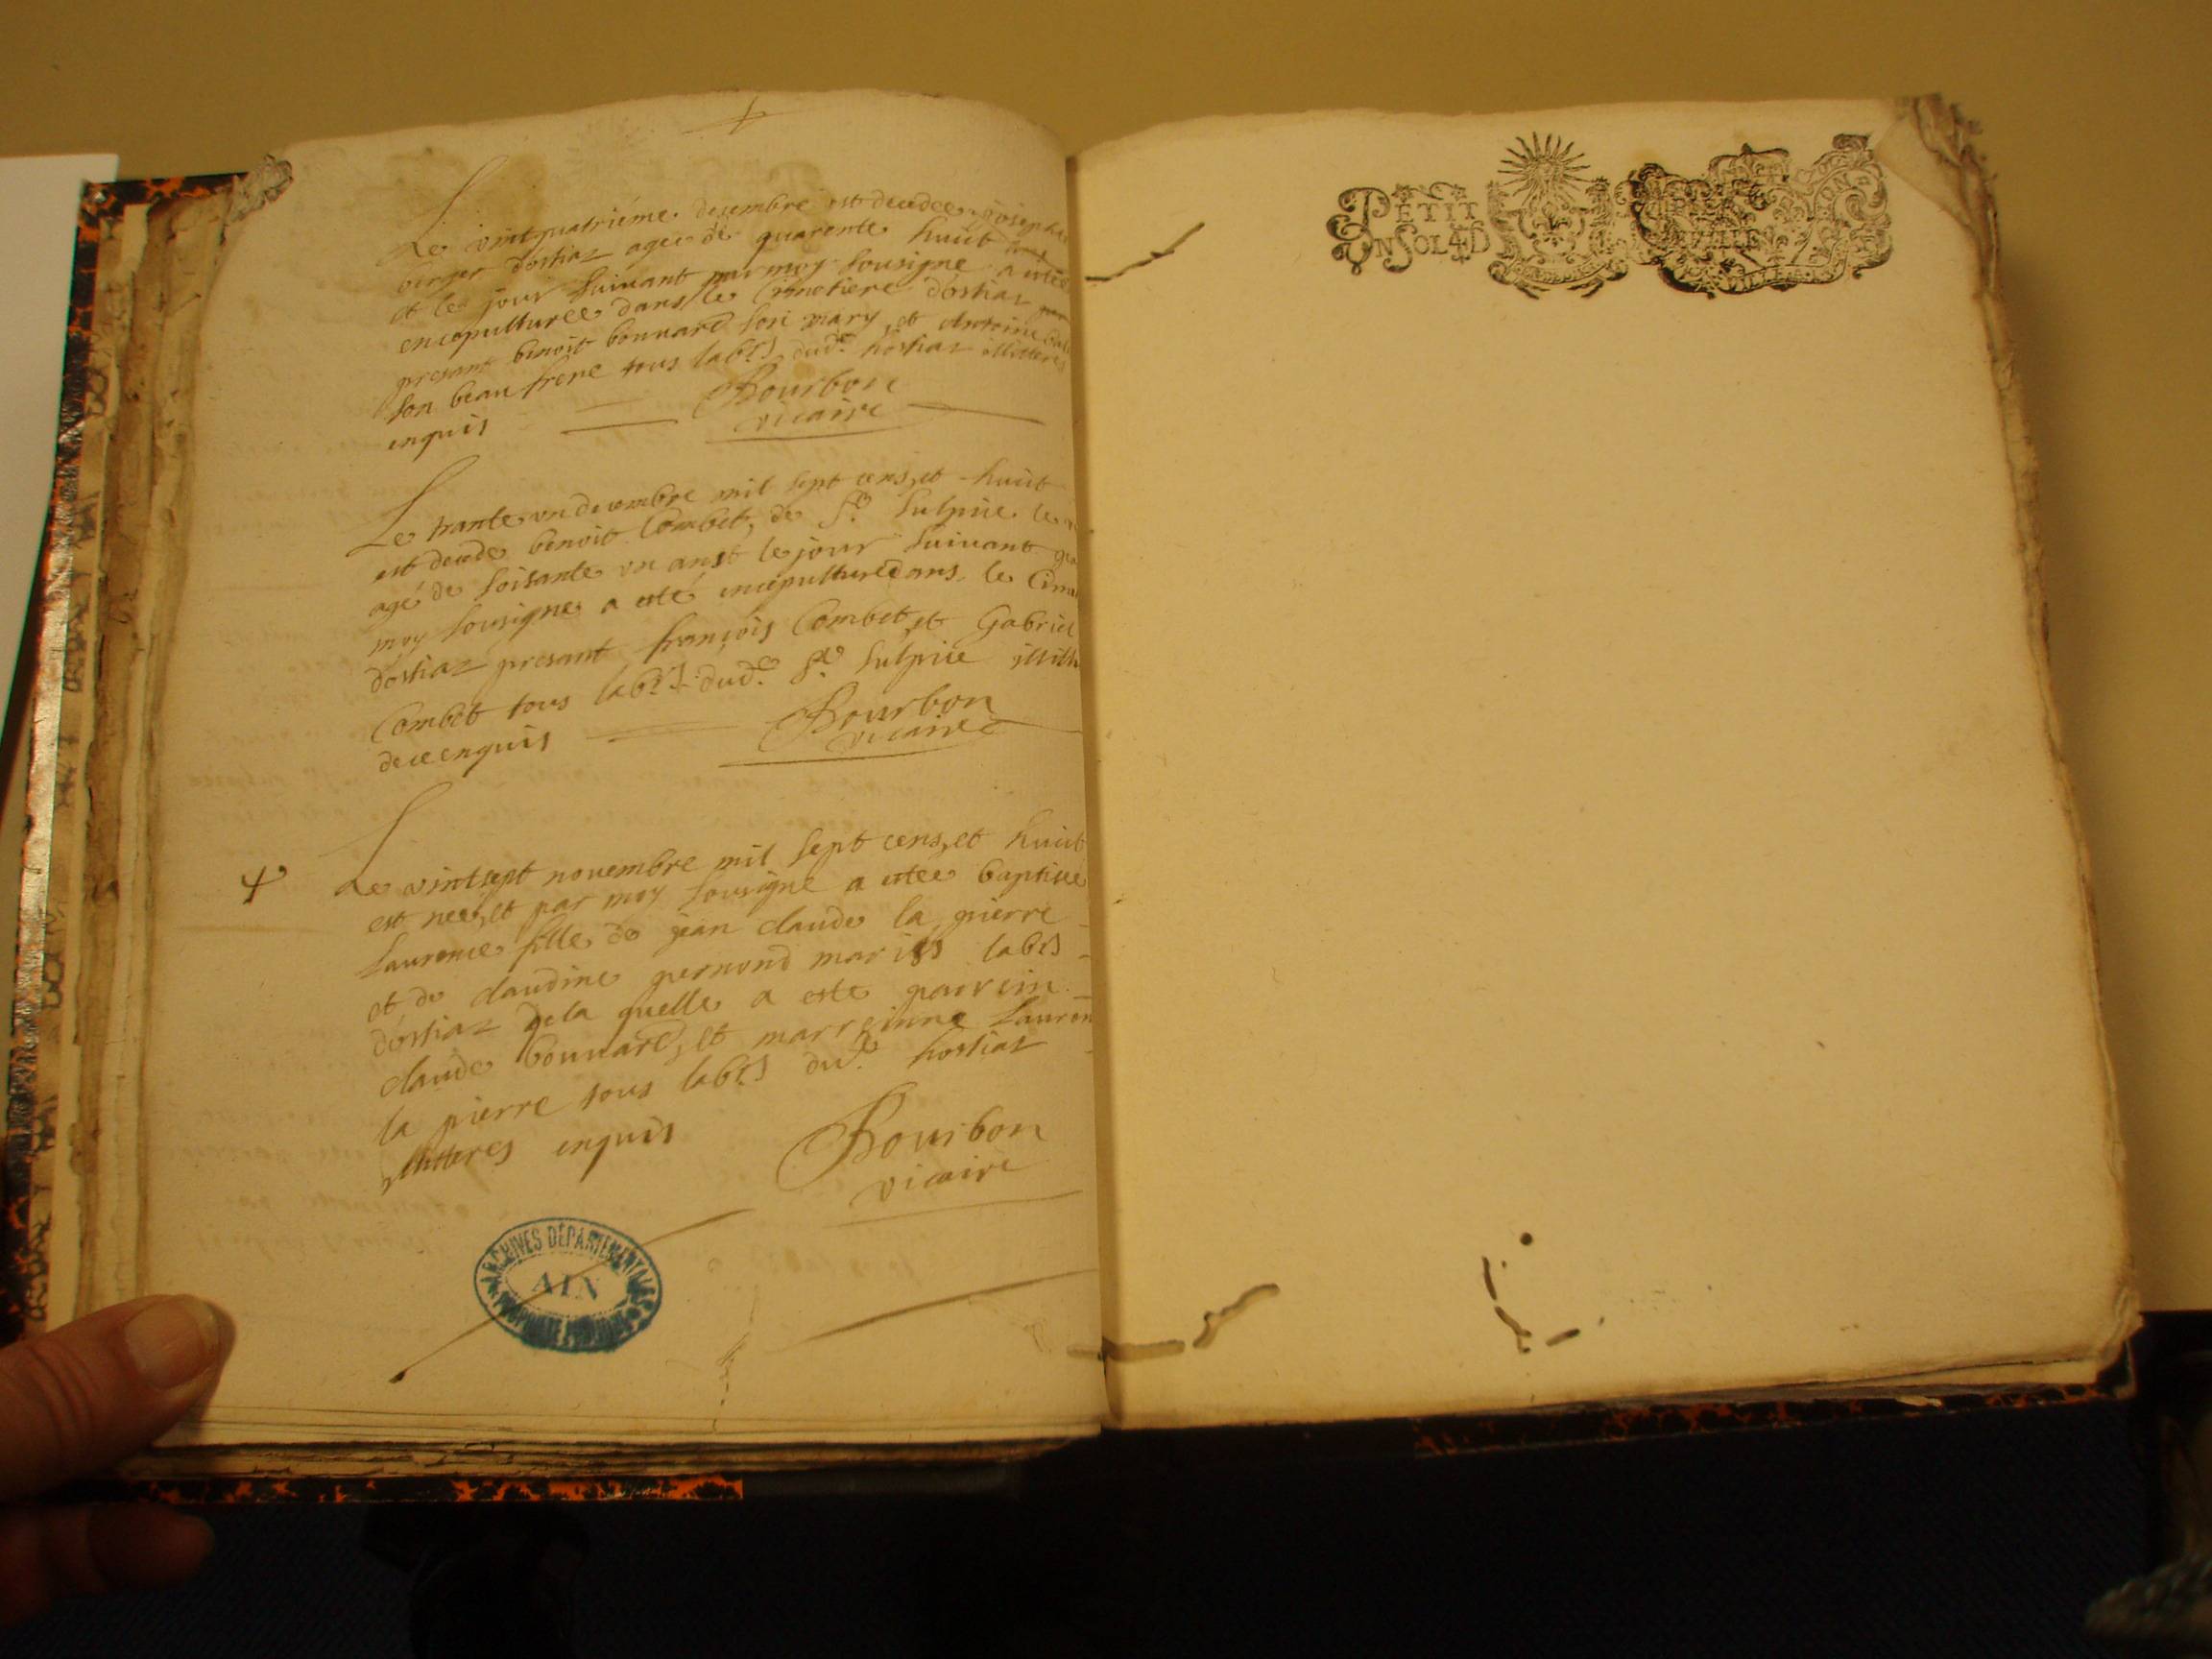 Le vintquatriéme decembre est decedee Josephe
verger d'ostiaz agee de quarente huict ans
et le jour suivant par moy sousigne a estée
encepulturee dans le Cimetiere d'ostiaz
presant benoit bonnard son mary et Antoine
son beau frere tous labrs dudt hostiaz illitteres
enquis
Bourbon
vicaire
Le trante un decembre mil sept cens, et huict
est decede benoit Combet, de St Sulpice le
agé de soisante un ans et le jour suivant
moy sousigne a esté encepulturé dans le Cime
d'ostiaz presant françois Combet, et Gabriel
Combet tous labrs dudt St Sulpice illitt
de ce enquis
Bourbon
vicaire
Le vintsept novembre mil sept cens, et huict
est neé, et par moy sousigne a estee baptisee
Laurence fille de jean claude la pierre
et de claudine pernond mariés labrs
d'ostiaz de la quelle a este parrein
claude bonnard, et marreinne Lauren
la pierre tous labrs dudt hostiaz
illitteres enquis
Bourbon
vicaire
ARCHIVES DÉPARTEMENTALES
AIN
PETIT
UN SOL 4 D